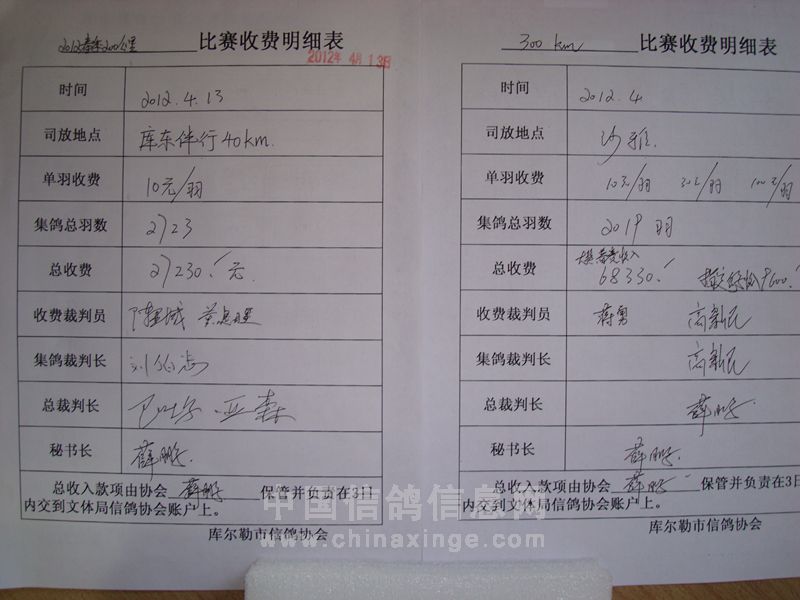 2012春季200公里 比赛收费明细表
2012年 4月 13日
时间 2012.4.13
司放地点 库东伴行40km.
单羽收费 10元/羽
集鸽总羽数 2723
总收费 27230.元
收费裁判员
集鸽裁判长
总裁判长
秘书长 薛鹏
总收入款项由协会 薛鹏 保管并负责在3日
内交到文体局信鸽协会账户上。
库尔勒市信鸽协会
300 km 比赛收费明细表
时间 2012.4
司放地点 沙雅.
单羽收费 10元/羽 30元/羽 100元/羽
集鸽总羽数 2019 羽
总收费 68330.
收费裁判员 蒋勇 高新民
集鸽裁判长 高新民
总裁判长 薛鹏
秘书长 薛鹏
总收入款项由协会 薛鹏 保管并负责在3日
内交到文体局信鸽协会账户上。
库尔勒市信鸽协会
中国信鸽信息网
www.chinaxinge.com